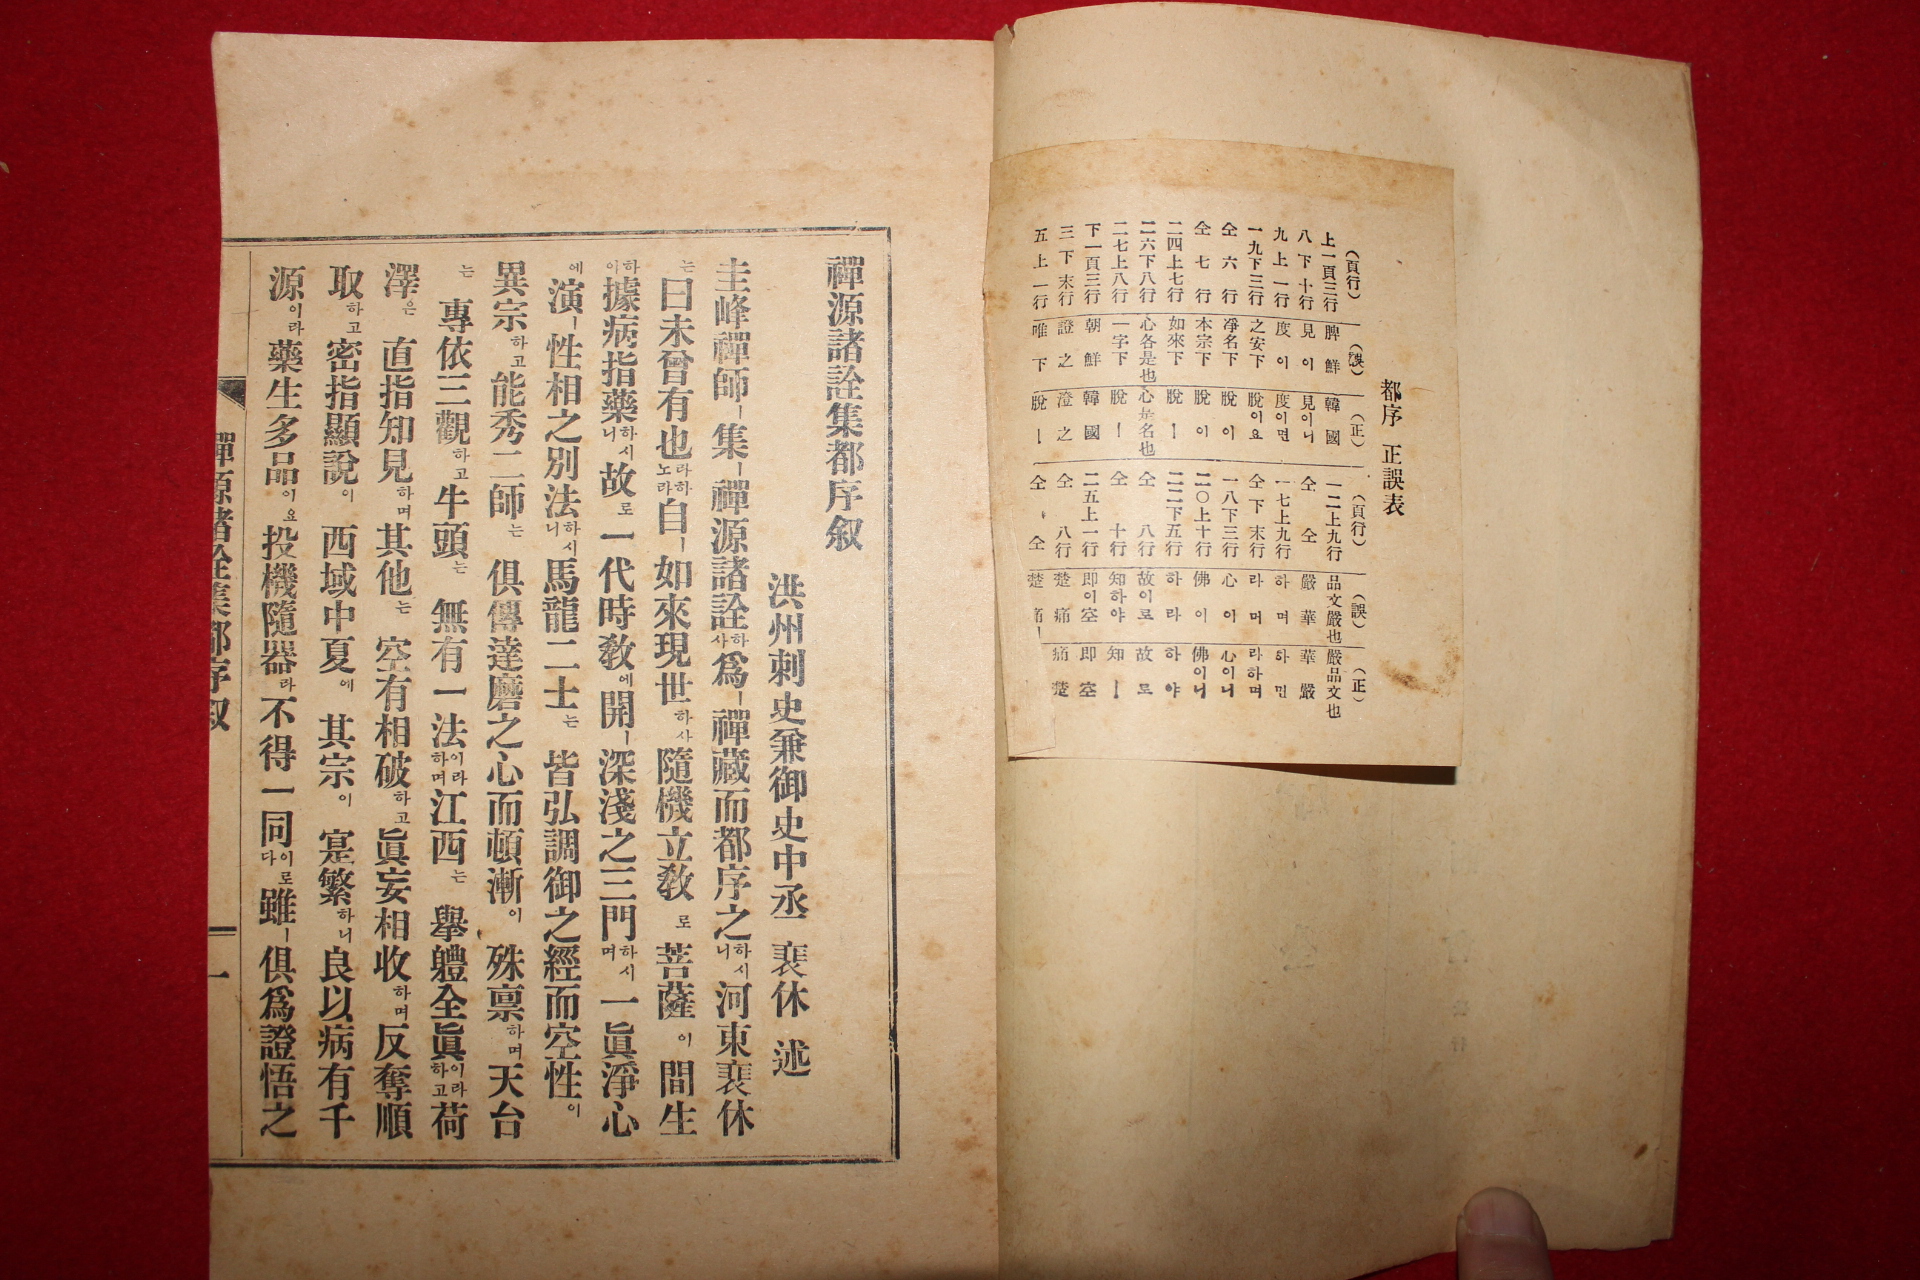 都序 正誤表
(頁行) (誤) (正) (頁行) (誤) (正)
上一頁三行 脾鮮 韓國 一二上九行 品文嚴也 嚴品文也
八下十行 見이 見이니 仝 仝 嚴華 華嚴
九上一行 度이 度이면 一七上九行 하며 하면
一九下三行 之安下 脫이요 仝下末行 라며 라하며
仝六行 淨名下 脫이 一八下三行 心이 心이니
仝七行 本宗下 脫이 二〇上十行 佛이 佛이니
二四上七行 如來下 脫ㅣ 二二下五行 하라 하야
二六下八行 心各是也 心是名也 仝八行 故이로 故로
二七上八行 一字下 脫ㅣ 仝十行 知하야 知ㅣ
下一頁三行 朝鮮 韓國 二五上一行 即이空 即空
三下末行 證之 澄之 仝八行 楚痛 痛楚
五上一行 唯下 脫ㅣ 仝 仝 楚痛ㅣ
禪源諸詮集都序叙
洪州刺史兼御史中丞 裴休 述
圭峰禪師ㅣ集ㅣ禪源諸詮하사爲ㅣ禪藏而都序之하시니河東裴休
는曰未曾有也라하노라自ㅣ如來現世하사隨機立敎로菩薩이間生
하이據病指藥하시니故로一代時敎에開ㅣ深淺之三門하시며一眞淨心
에演ㅣ性相之別法하시니馬龍二士는皆弘調御之經而空性이
異宗하고能秀二師는俱傳達磨之心而頓漸이殊稟하며天台
는專依三觀하고牛頭는無有一法이라하며江西는擧體全眞이라하고荷
澤은直指知見하며其他는空有相破하고眞妄相收하며反奪順
取하고密指顯說이西域中夏에其宗이寔繁하니良以病有千
源이라藥生多品이요投機隨器라不得一同이로다雖ㅣ俱爲證悟之
禪源諸詮集都序叙 一